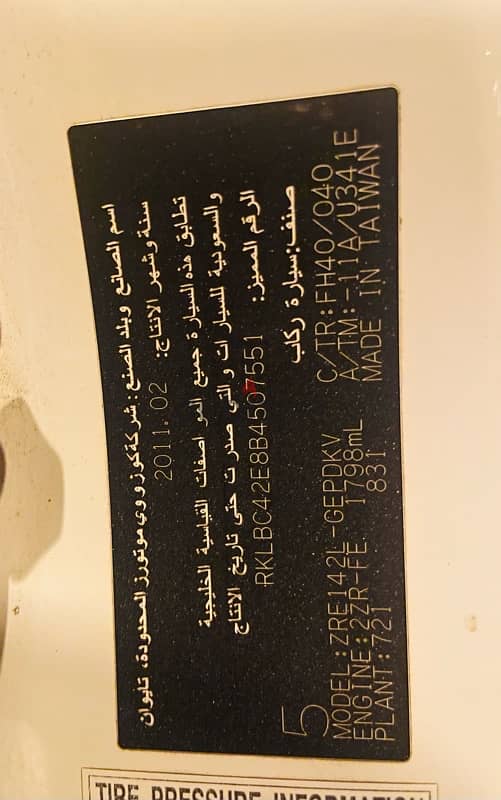 اسم الصانع وبلد الصنع: شركة كوزووي موتورز المحدودة، تايوان
سنة وشهر الانتاج: 2011.02
تطابق هذه السيارة جميع المواصفات القياسية الخليجية
والسعودية للسيارات والتي صدرت حتى تاريخ الانتاج
الرقم المميز: RKLBC42E8B4507551
صنف: سيارة ركاب
5
MODEL:ZRE142L-GEPDKV C/TR:FH40/040
ENGINE:2ZR-FE 1798mL A/TM:-11A/U341E
PLANT:721 831 MADE IN TAIWAN
TIRE PRESSURE INFORMATION